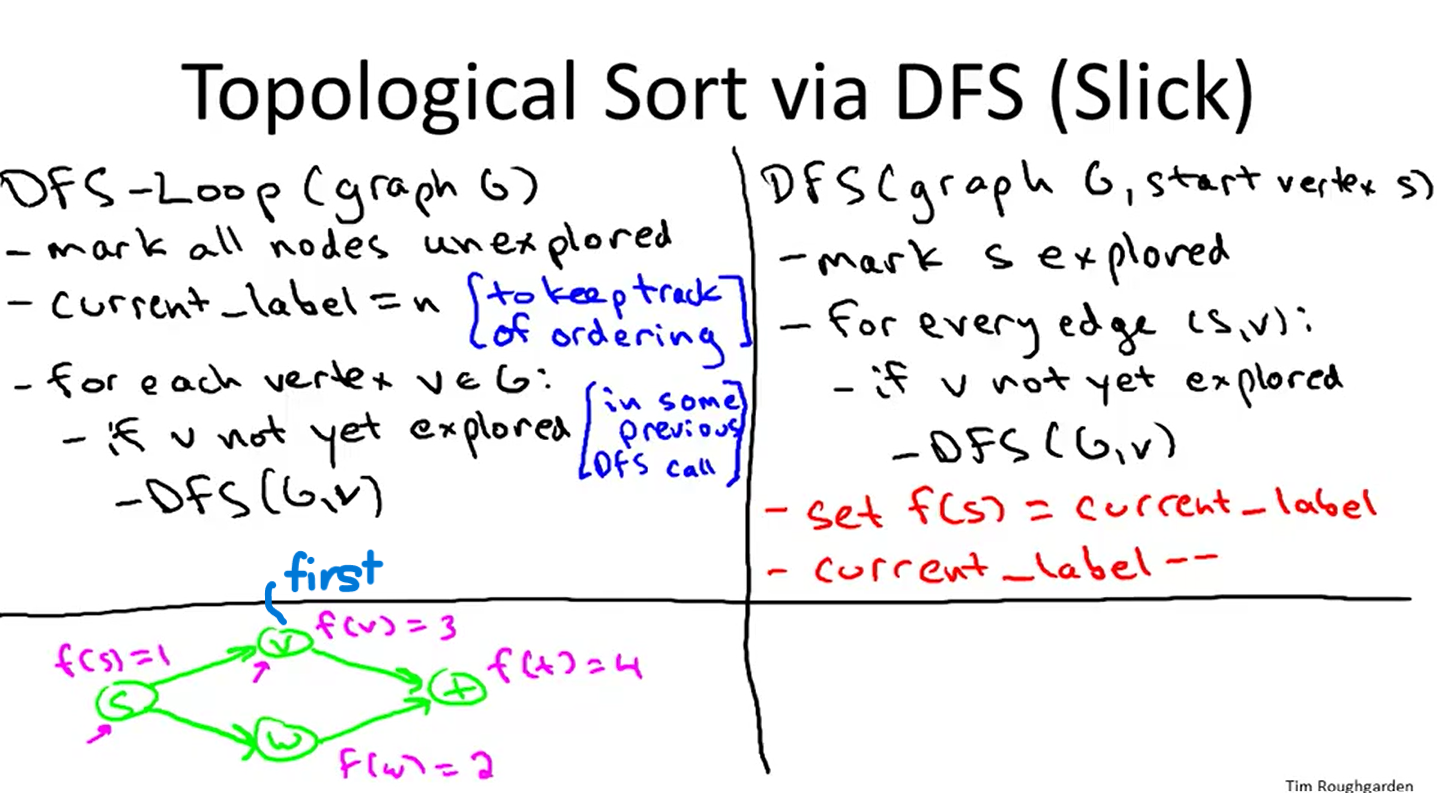 Topological Sort via DFS (Slick)
DFS-Loop (graph G)
- mark all nodes unexplored
- current_label = n [to keep track
of ordering]
- for each vertex v ∈ G:
- if v not yet explored [in some
previous
DFS call]
- DFS(G,v)
DFS(graph G, start vertex s)
- mark s explored
- for every edge (s,v):
- if v not yet explored
- DFS(G,v)
- set f(s) = current_label
- current_label --
first
f(s)=1
v
f(v)=3
s
t
f(t)=4
w
f(w)=2
Tim Roughgarden